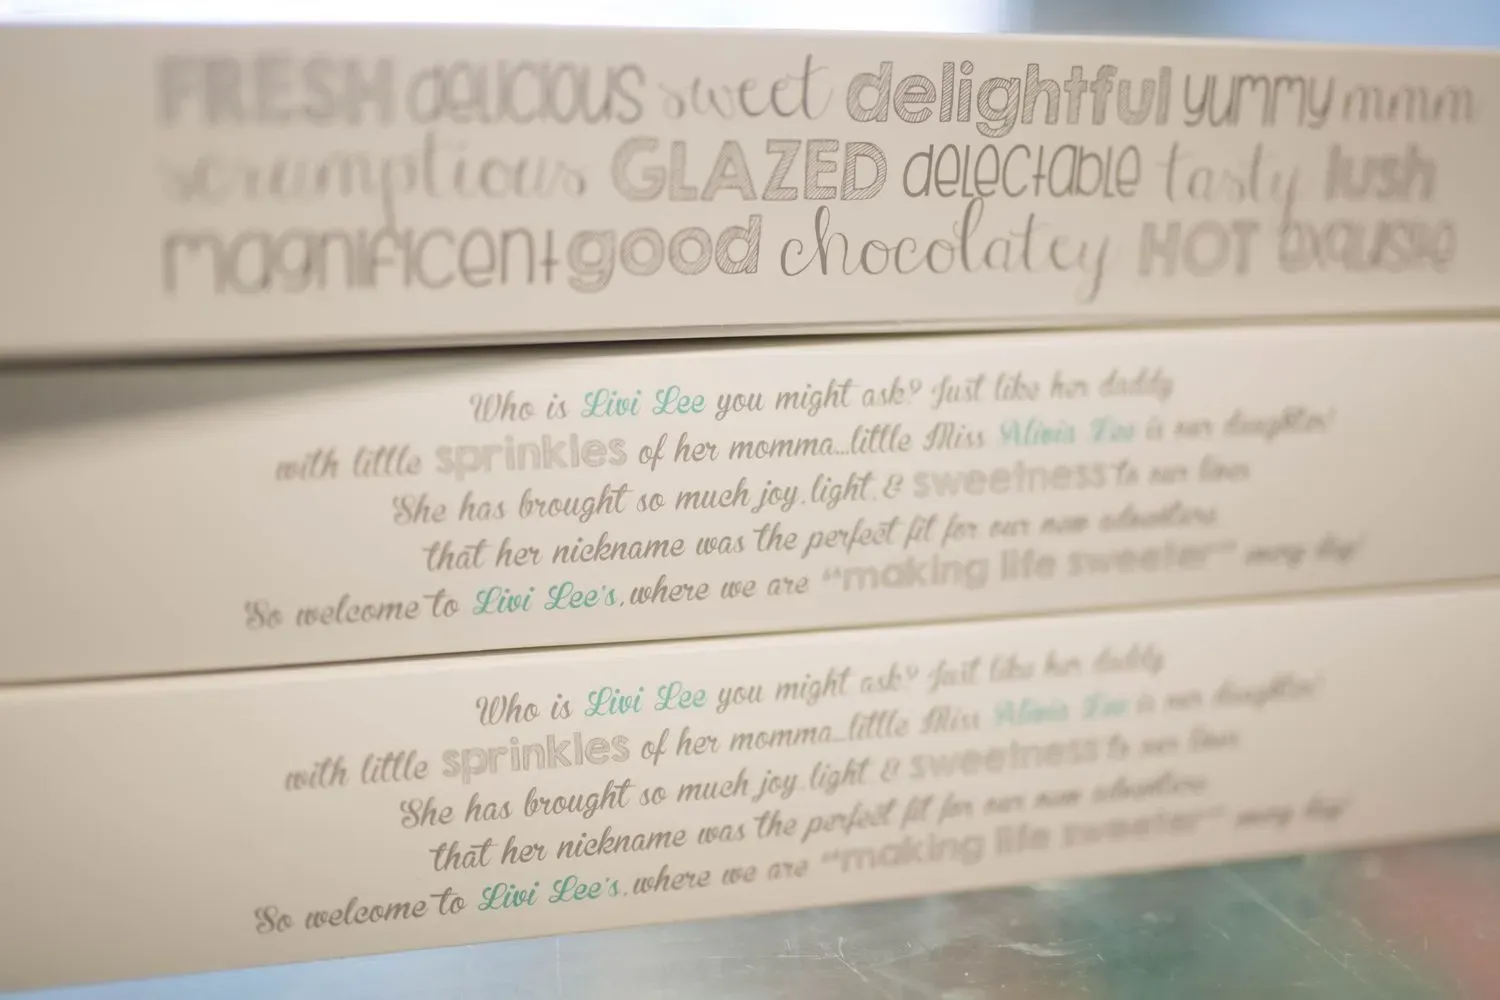 FRESH delicious sweet delightful yummy mmm
scrumptious GLAZED delectable tasty lush
magnificent good chocolatey HOT exquisite
Who is Livi Lee you might ask? Just like her daddy
with little sprinkles of her momma...little Miss Alivia Lee is our daughter!
She has brought so much joy, light, & sweetness to our lives
that her nickname was the perfect fit for our new adventure.
So welcome to Livi Lee's, where we are "making life sweeter" every day!
Who is Livi Lee you might ask? Just like her daddy
with little sprinkles of her momma...little Miss Alivia Lee is our daughter!
She has brought so much joy, light, & sweetness to our lives
that her nickname was the perfect fit for our new adventure.
So welcome to Livi Lee's, where we are "making life sweeter" every day!